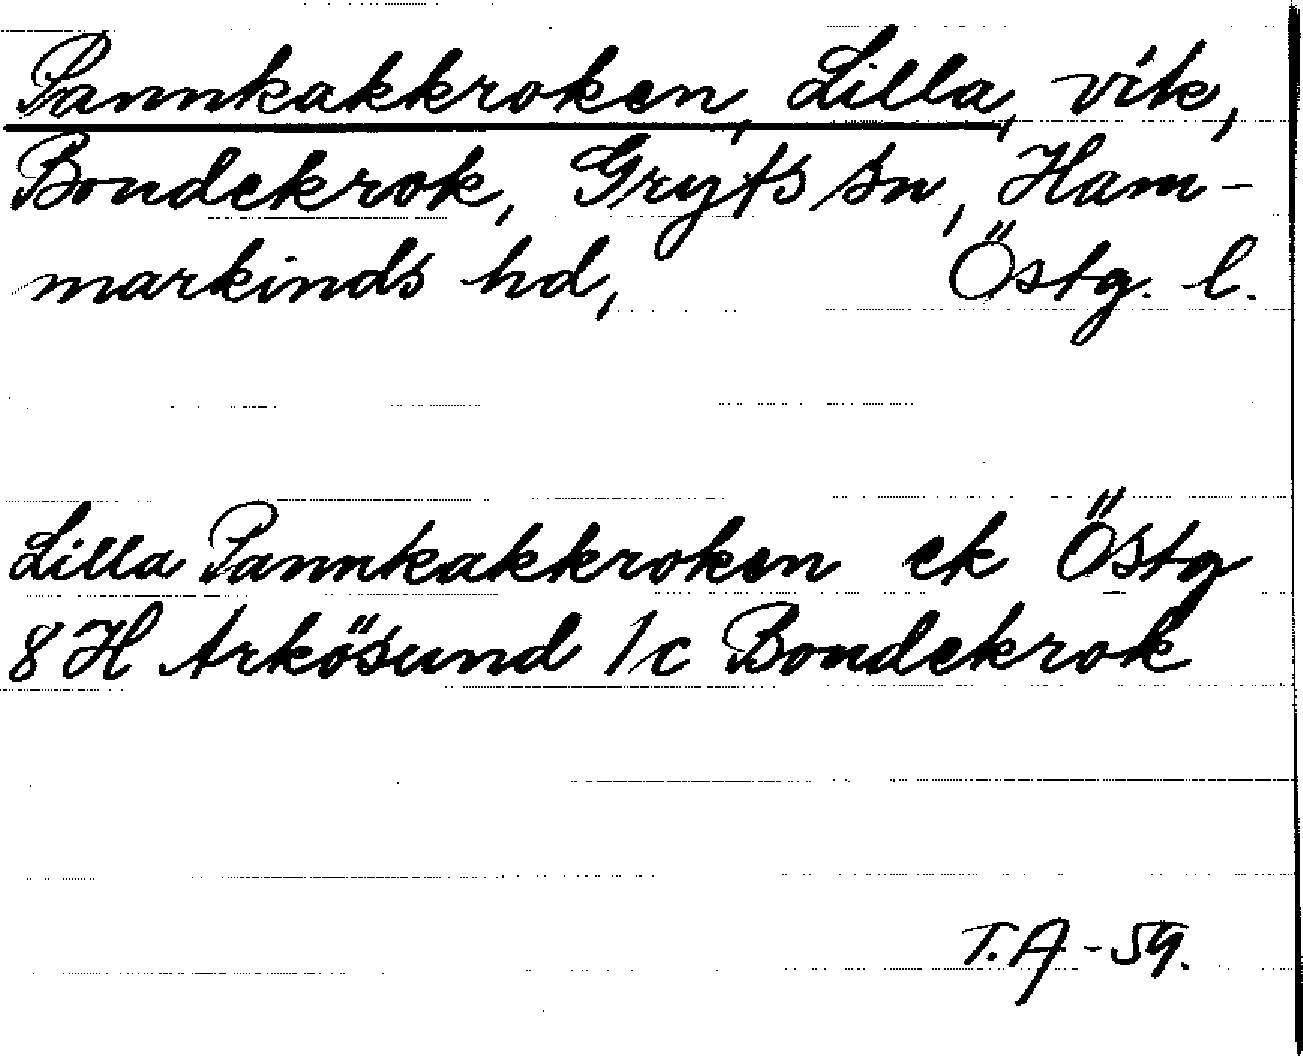 Pannkakkroken, Lilla, vik,
Bondekrok, Gryts sn, Ham-
markinds hd, Östg. l.
Lilla Pannkakkroken ek Östg
8H Arkösund 1c Bondekrok
T.A-59.